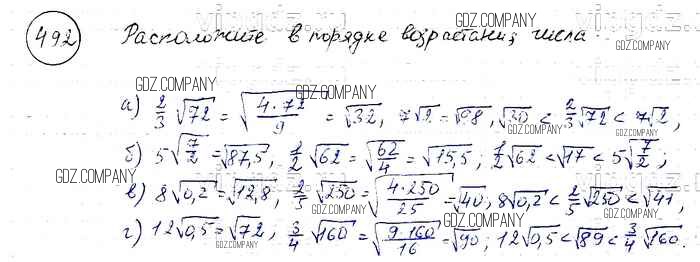 492 Расположите в порядке возрастания числа
а) 2/3 √72 = √(4·72/9) = √32, 7√2 = √98, √30 < 2/3 √72 < 7√2,
б) 5√(7/2) = √87,5, 1/2 √62 = √(62/4) = √15,5; 1/2 √62 < √17 < 5√(7/2);
в) 8√0,2 = √12,8, 2/5 √250 = √(4·250/25) = √40, 8√0,2 < 2/5 √250 < √41,
г) 12√0,5 = √72, 3/4 √160 = √(9·160/16) = √90; 12√0,5 < √89 < 3/4 √160.
GDZ.COMPANY
GDZ.COMPANY
GDZ.COMPANY
GDZ.COMPANY
GDZ.COMPANY
GDZ.COMPANY
GDZ.COMPANY
GDZ.COMPANY
GDZ.COMPANY
GDZ.COMPANY